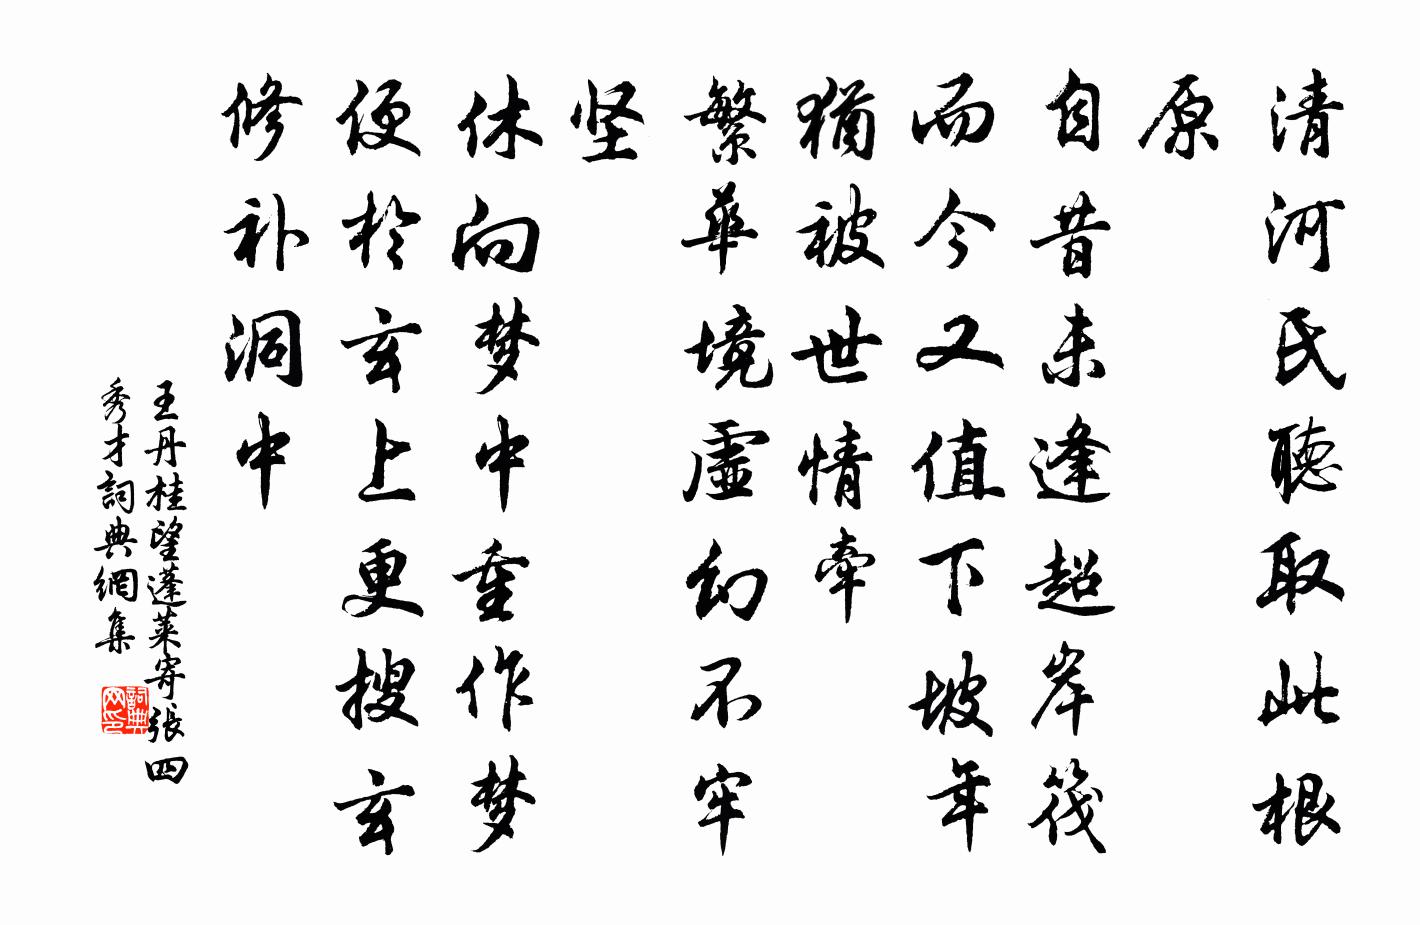 清河民聽取此根
原
自昔未逢超岸筏
而今又值下坡年
猶被世情牽
繁華境虛幻不牢
坚
休向梦中重作梦
便於玄上更搜玄
修补洞中
王丹桂望蓬莱寄張四
秀才詞典網集
詞典网印